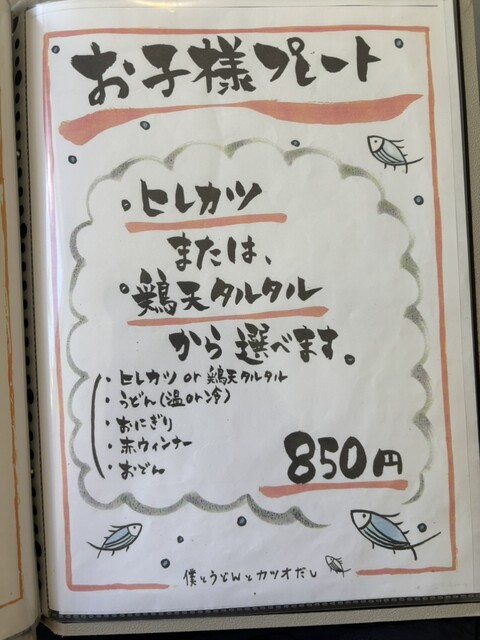 お子様プレート
・ヒレカツ
または、
・鶏天タルタル
から選べます。
・ヒレカツ or 鶏天タルタル
・うどん(温or冷)
・おにぎり
・赤ウィンナー
・おでん
850円
僕とうどんとカツオだし